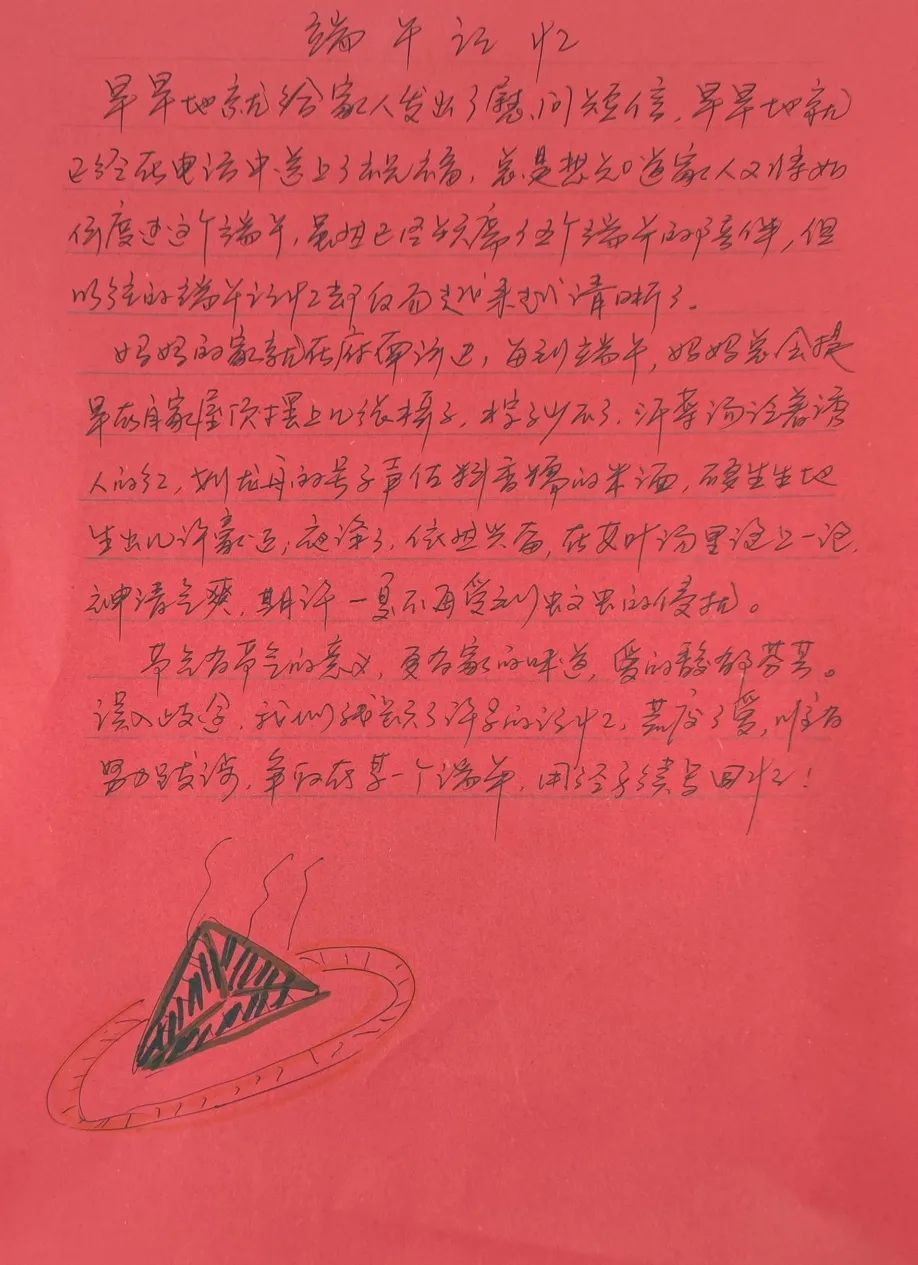 端午记忆
早早地就给家人发出了慰问短信，早早地就
已经在电话中送上了祝福，总是想知道家人又将如
何度过这个端午，虽然已经缺席了五个端午的陪伴，但
以往的端午记忆却反而越来越清晰了。
妈妈的家就在府河边，每到端午，妈妈总会提
早在自家屋顶摆上几张桌子，粽子少不了，汗菜汤泛着诱
人的红，划龙舟的号子声佐料香糯的米酒，硬生生地
生出几许豪迈；夜深了，依然兴奋，在艾叶汤里泡上一泡，
神清气爽，期许一夏不再受到蚊虫的侵扰。
节气有节气的意义，更有家的味道，爱的馥郁芬芳。
误入歧途，我们残缺了许多的记忆，荒废了爱，唯有
努力跋涉，争取在某一个端午，用经手续写回忆！